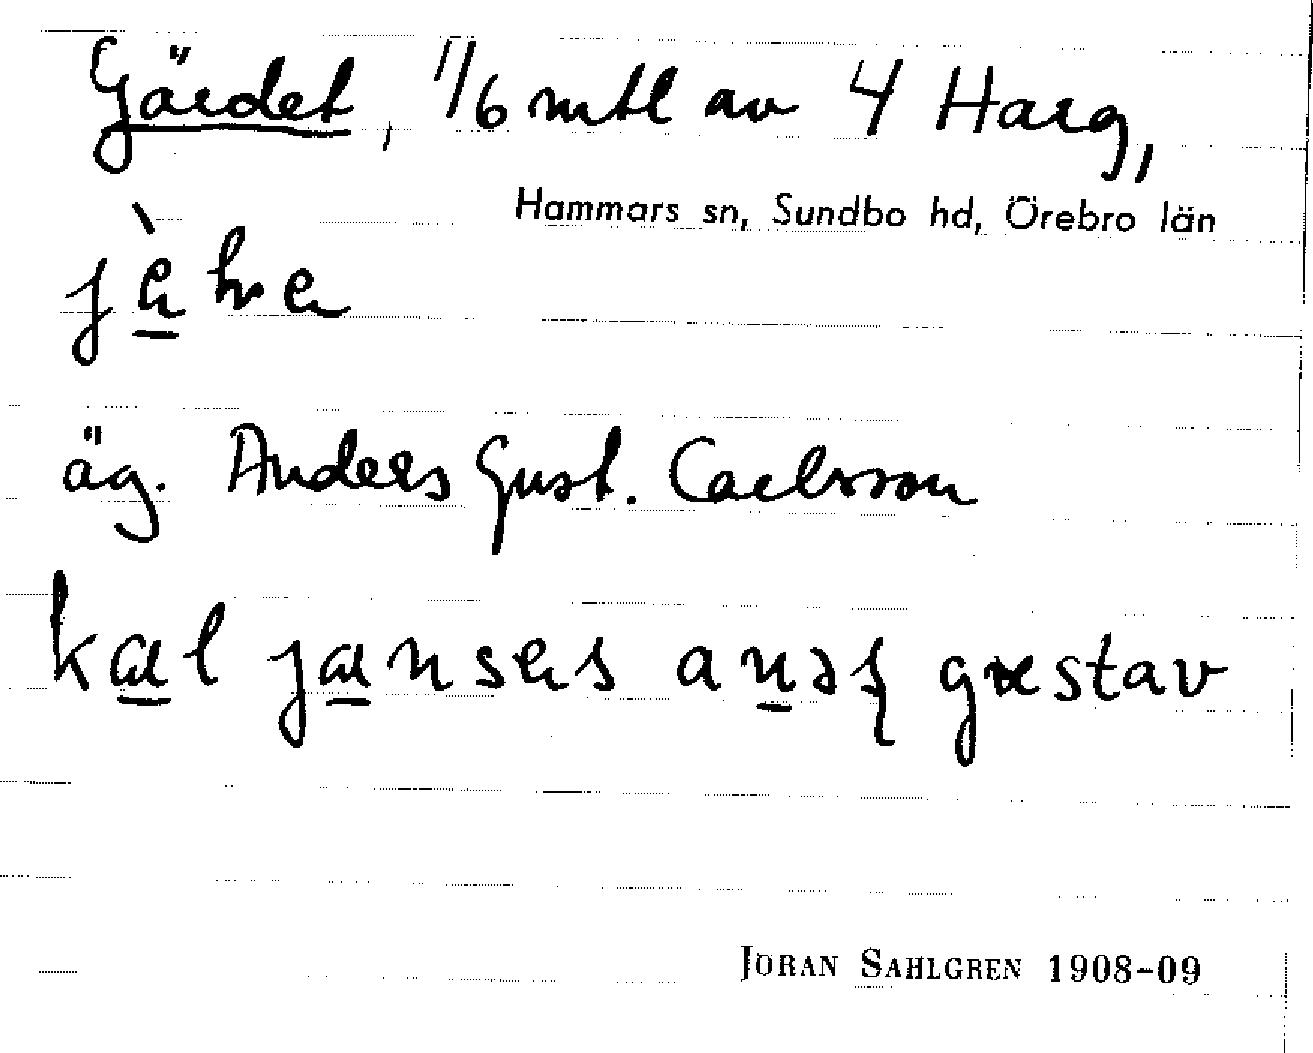 Gärdet, 1/6 mtl av 4 Harg,
Hammars sn, Sundbo hd, Örebro län
äg. Anders Gust. Carlsson
gustav
JÖRAN SAHLGREN 1908-09